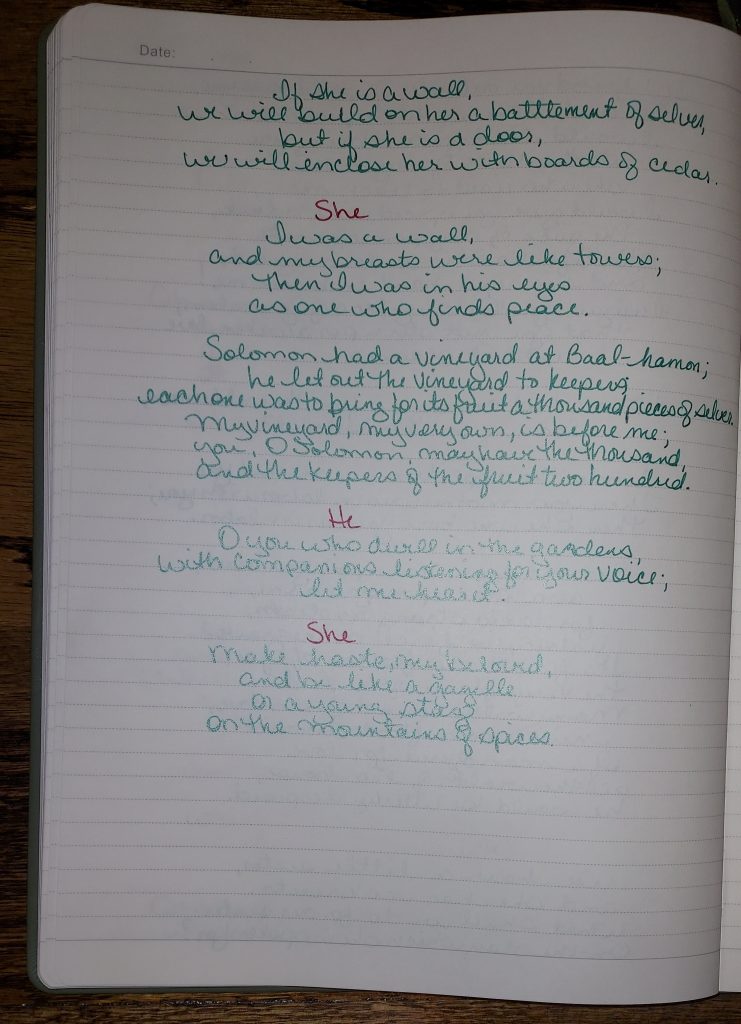 Date:
If she is a wall,
we will build on her a batttlement of selver,
but if she is a door,
we will enclose her with boards of cedar.
She
I was a wall,
and my breasts were like towers;
then I was in his eyes
as one who finds peace.
Solomon had a vineyard at Baal-hamon;
he let out the vineyard to keepers;
each one was to bring for its fruit a thousand pieces of selver.
My vineyard, my very own, is before me;
you, O Solomon, may have the thousand,
and the keepers of the fruit two hundred.
He
O you who dwell in the gardens,
with companions listening for your voice;
let me hear it.
She
Make haste, my beloved,
and be like a gazelle
or a young stag
on the mountains of spices.